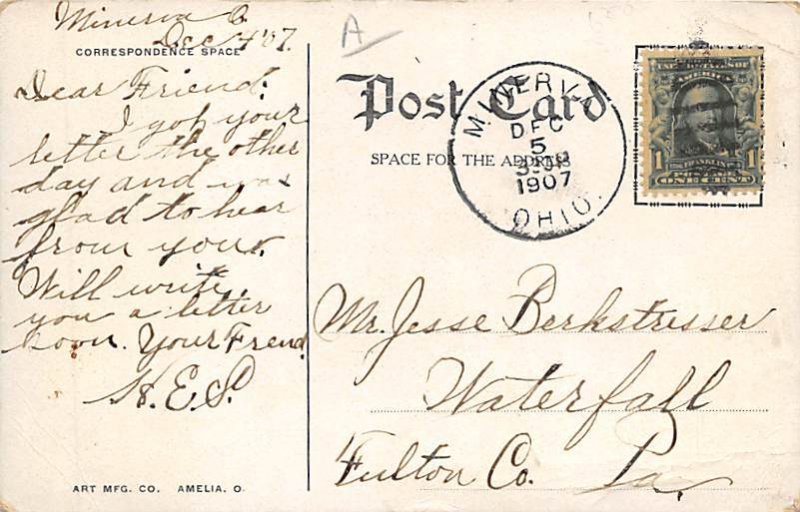 Minerva O
Dec 4 '07.
CORRESPONDENCE SPACE
Dear Friend:
I got your
letter the other
day and was
glad to hear
from you.
Will write
you a letter
soon. Your Frend
H. E. S.
ART MFG. CO. AMELIA, O.
A
Post Card
SPACE FOR THE ADDRESS
MINERVA
DEC
5
1907
OHIO.
AMERICA
1 1
FRANKLIN
ONE CENT
Mr. Jesse Berkstresser
Waterfall
Fulton Co. Pa.